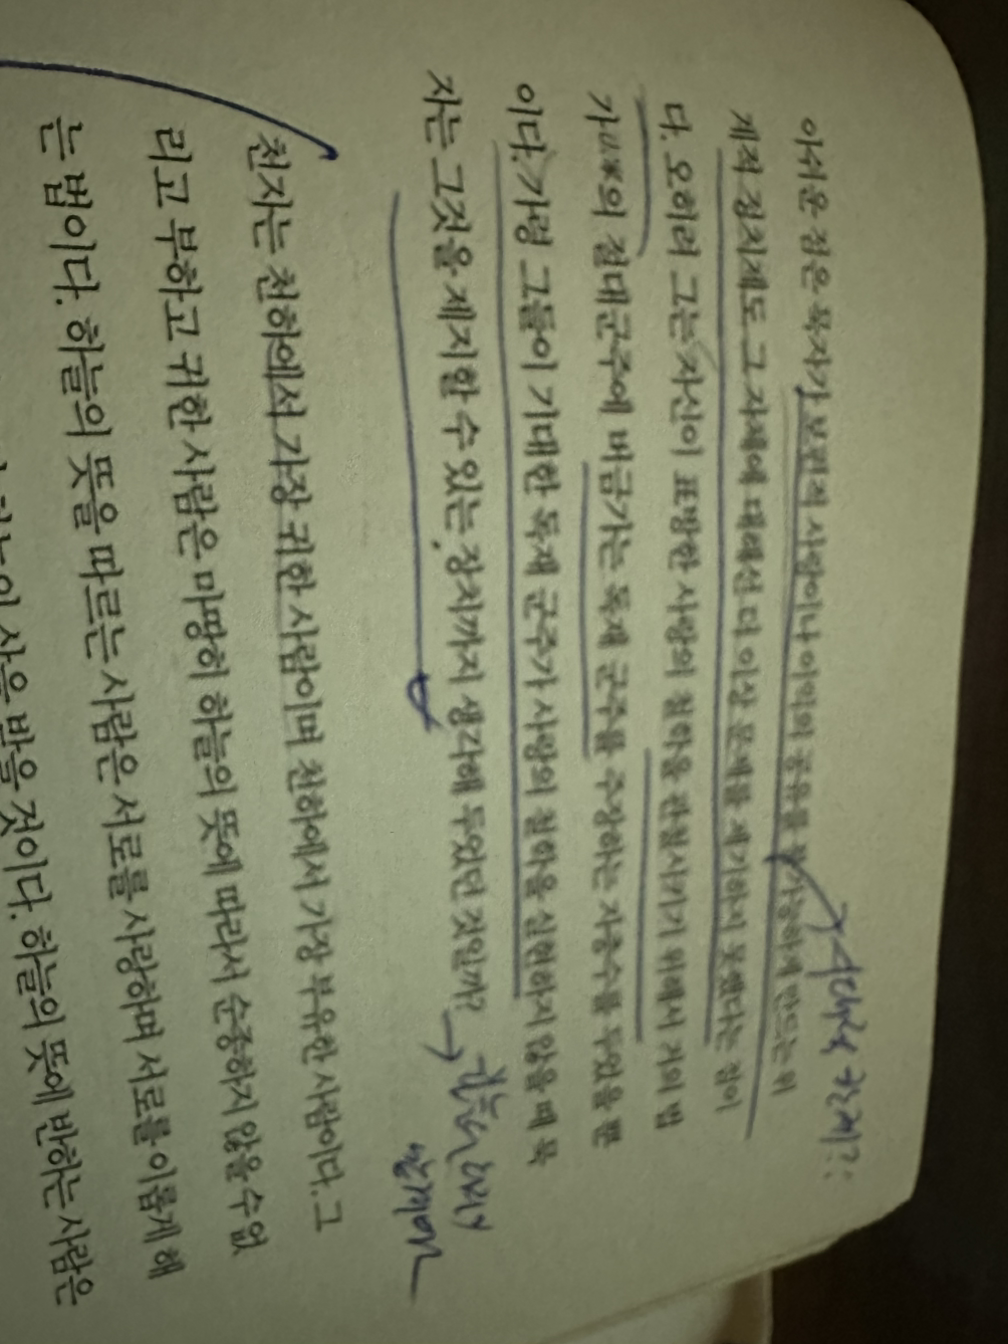 아쉬운 점은 묵자가 보편적 사랑이나 이익의 공유를 불가능하게 만드는 위
계적 정치제도 그 자체에 대해선 더 이상 문제를 제기하지 못했다는 점이
다. 오히려 그는 자신이 표방한 사랑의 철학을 관철시키기 위해서 거의 법
가法家의 절대군주에 버금가는 독재 군주를 주장하는 자충수를 두었을 뿐
이다. 가령 그들이 기대한 독재 군주가 사랑의 철학을 실현하지 않을 때 묵
자는 그것을 제지할 수 있는 장치까지 생각해 두었던 것일까?
천자는 천하에서 가장 귀한 사람이며 천하에서 가장 부유한 사람이다. 그
리고 부하고 귀한 사람은 마땅히 하늘의 뜻에 따라서 순종하지 않을 수 없
는 법이다. 하늘의 뜻을 따르는 사람은 서로를 사랑하며 서로를 이롭게 해
상을 받을 것이다. 하늘의 뜻에 반하는 사람은